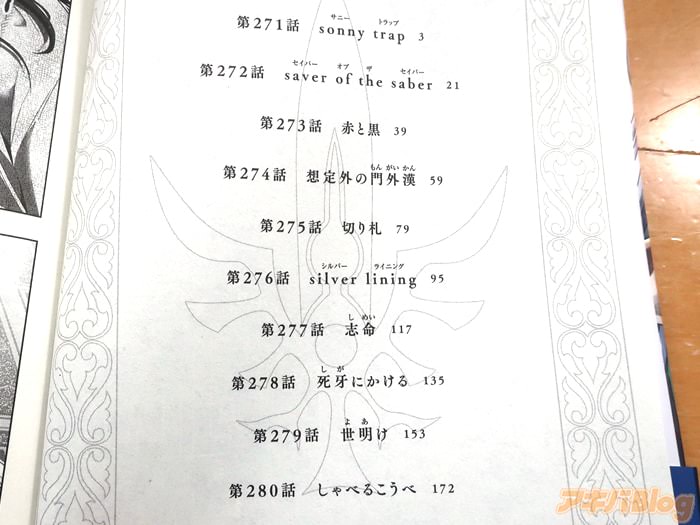 第271話 sonny trap 3
サニー トラップ
第272話 saver of the saber 21
セイバー オブ ザ セイバー
第273話 赤と黒 39
第274話 想定外の門外漢 59
もん がい かん
第275話 切り札 79
第276話 silver lining 95
シルバー ライニング
第277話 志命 117
し めい
第278話 死牙にかける 135
し が
第279話 世明け 153
よ あ
第280話 しゃべるこうべ 172
アキバBlog